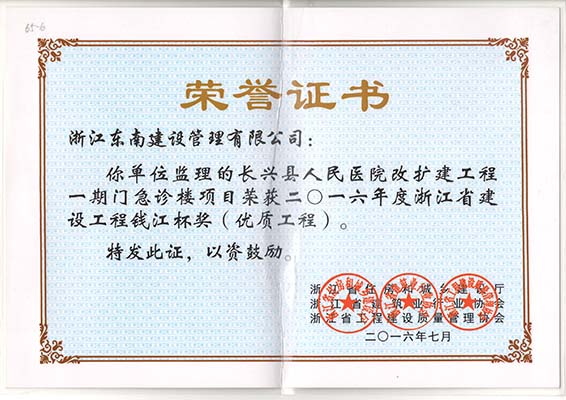 65-6
荣誉证书
浙江东南建设管理有限公司：
你单位监理的长兴县人民医院改扩建工程
一期门急诊楼项目荣获二〇一六年度浙江省建
设工程钱江杯奖（优质工程）。
特发此证，以资鼓励。
浙江省住房和城乡建设厅
浙江省建筑业行业协会
浙江省工程建设质量管理协会
二〇一六年七月